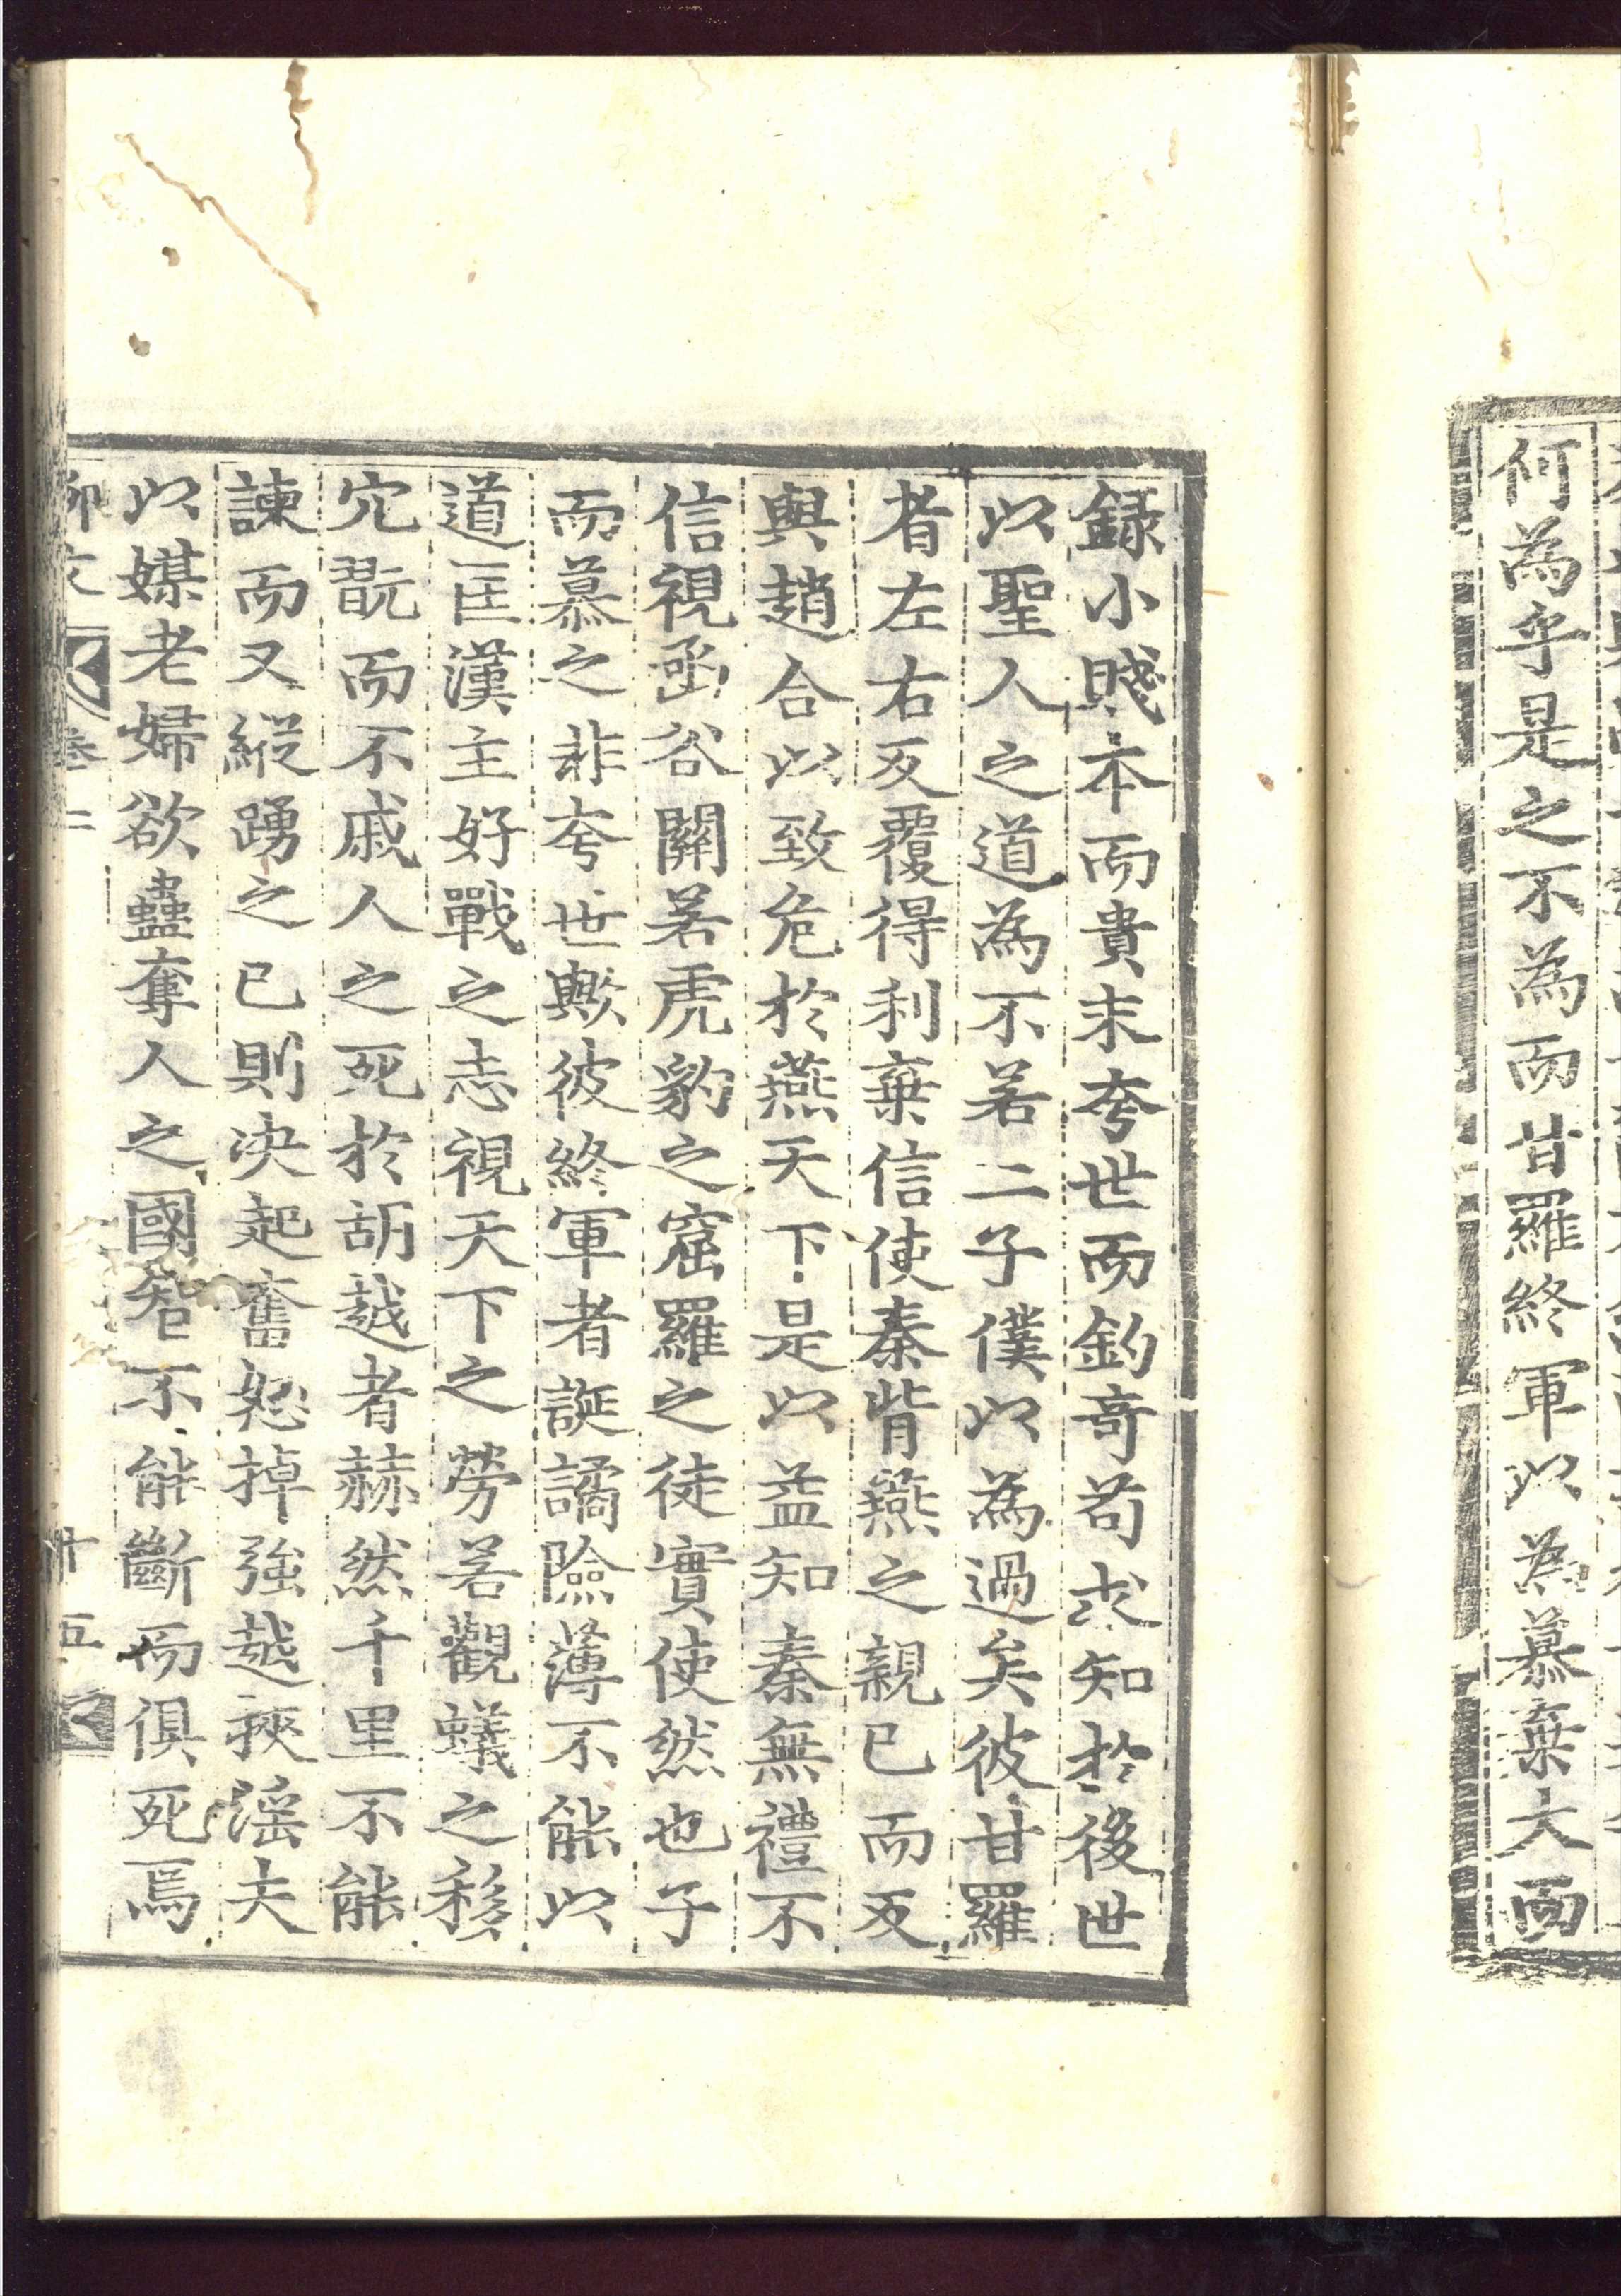 何為乎是之不為而甘羅終軍以為慕棄大而
録小賤本而貴末夸世而釣奇苟求知於後世
以聖人之道為不若二子僕以為過矣彼甘羅
者左右反覆得利棄信使秦背燕之親已而反
與趙合以致危於燕天下是以益知秦無禮不
信視函谷關若虎豹之窟羅之徒實使然也子
而慕之非夸世歟彼終軍者誕譎險薄不能以
道匡漢主好戰之志視天下之勞若觀蟻之移
穴翫而不戚人之死於胡越者赫然千里不能
諫而又縱踴之已則决起奮怒掉強越挾淫夫
以媒老婦欲蠱奪人之國智不能斷而俱死焉
柳文 卷二 十五